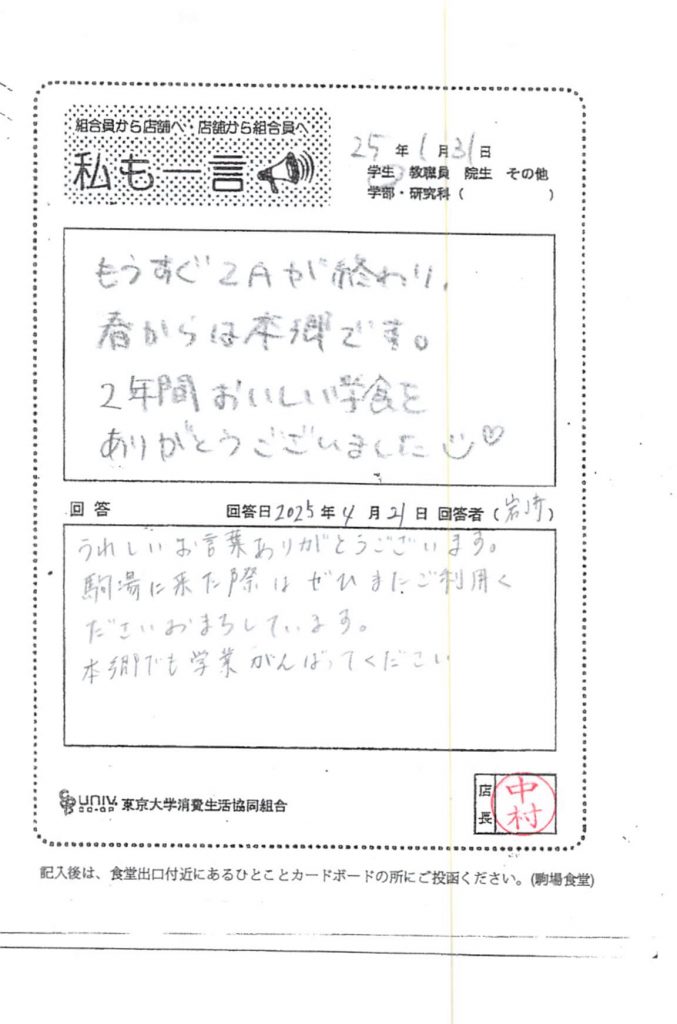 組合員から店舗へ・店舗から組合員へ
私も一言
25年1月31日
学生 教職員 院生 その他
学部・研究科（　　　　　　）
もうすぐ2Aが終わり、
春からは本郷です。
2年間おいしい学食を
ありがとうございました
回答 回答日2025年4月21日 回答者（岩崎）
うれしいお言葉ありがとうございます。
駒場に来た際はぜひまたご利用く
ださいおまちしています。
本郷でも学業がんばってください
UNIV. CO-OP 東京大学消費生活協同組合
店長 中村
記入後は、食堂出口付近にあるひとことカードボードの所にご投函ください。(駒場食堂)